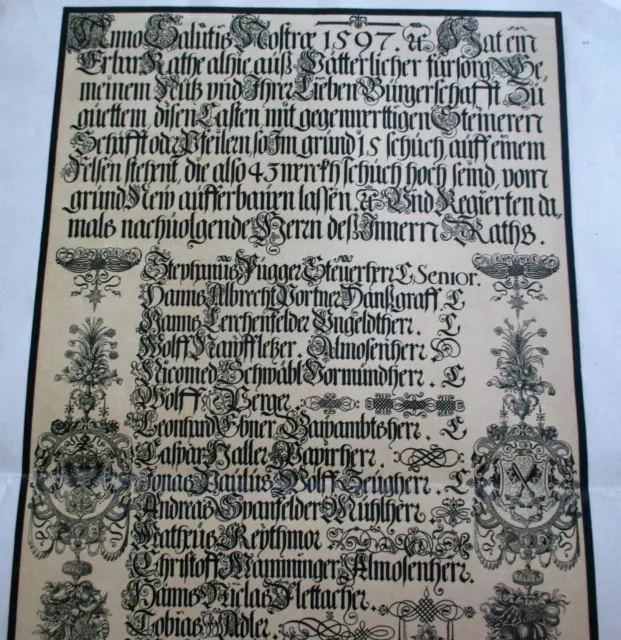 Anno Salutis Nostræ 1597. ꝛc. Hat ein
Erbar Rathe alhie auß Vätterlicher fürsorg Ge,
meinem Nutz vnd Ihrer Lieben Bürgerschafft Zü
güettem disen Casten mit gegenwerttigen Steineren
Schüfft oder Pfeilern so Im gründ 15 schüch auff einem
Felsen stehent, die also 43 werckhschüch hoch seind, vom
gründ New aufferbauen lassen. ꝛc. Vnd Regierten da,
mals nachuolgende Herrn deß Innern Raths.
Stephanus Fugger Steüerherr C Senior.
Hanns Albrecht Portner Hanßgraff C
Hanns Lerchenfelder Vngeldtherr. C
Wolff Almosenherr
Nicomed Schwäbl Vormündherr. C
Wolff Perger
Leonhard Ebner Bawambtsherr. C
Caspar Haller Papirherr.
Jonas Paulus Wolff Zeügherr. C
Andreas Spanfelder Mühlherr.
Reythmor
Christoff Mamminger Almosenherr.
Hanns Niclas Flettacher.
Tobias Adler